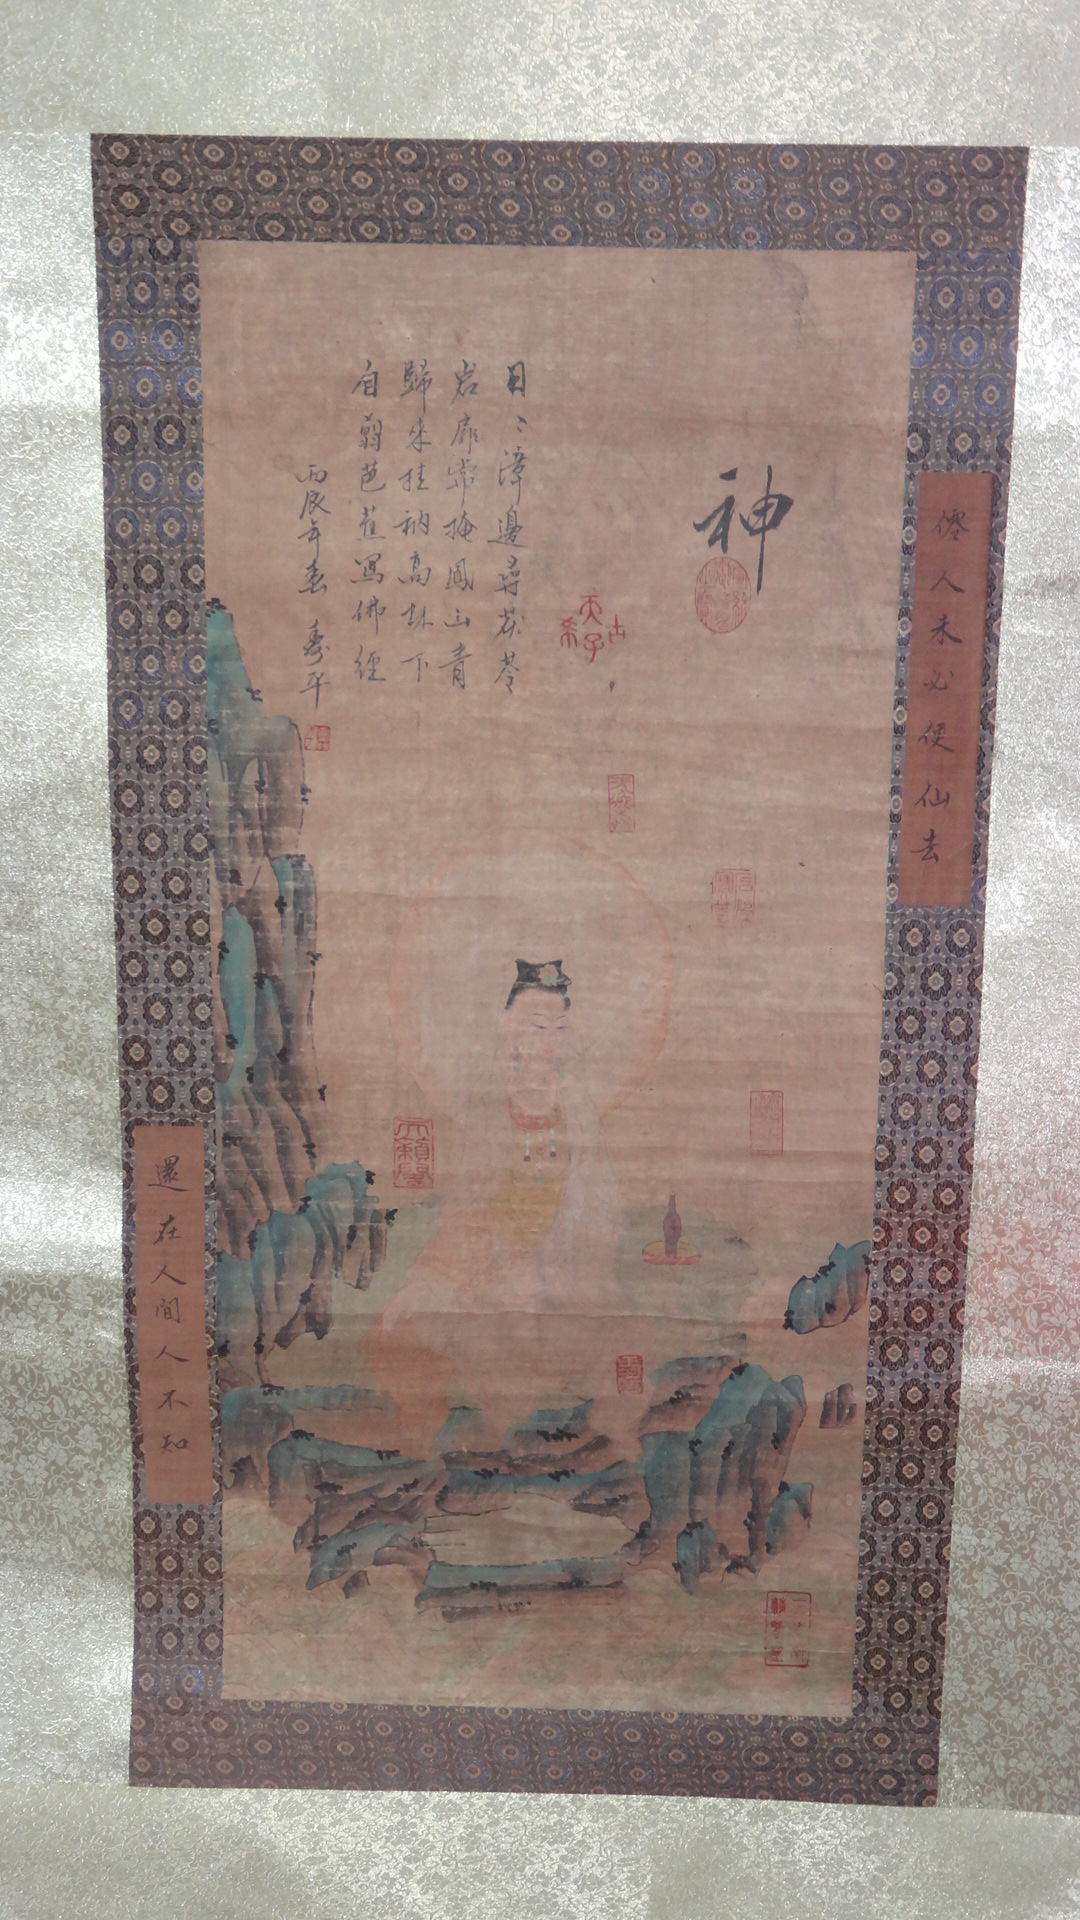 僊人未必便仙去
神
古希天子
日〻漳邊尋茯苓
岩扉常掩鳳山青
歸來挂衲高林下
自剪芭蕉寫佛經
丙辰年春 壽平
還在人間人不知